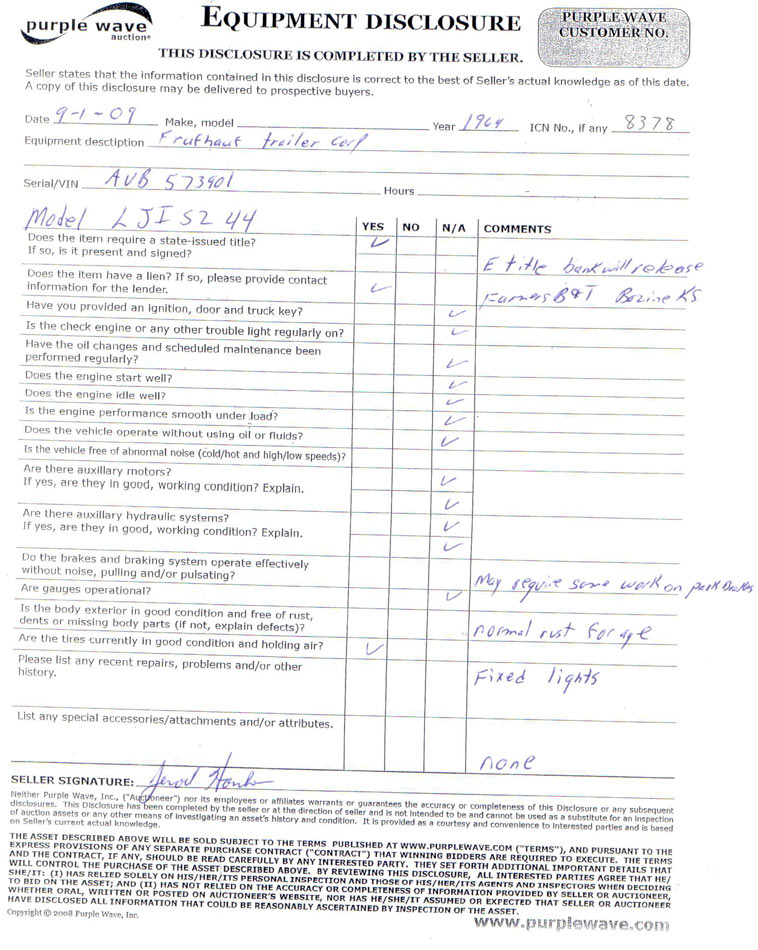 purple wave
auction®
EQUIPMENT DISCLOSURE
PURPLE WAVE
CUSTOMER NO.
THIS DISCLOSURE IS COMPLETED BY THE SELLER.
Seller states that the information contained in this disclosure is correct to the best of Seller's actual knowledge as of this date.
A copy of this disclosure may be delivered to prospective buyers.
Date 9-1-09 Make, model Year 1964 ICN No., if any 8378
Equipment desctiption Fruthauf trailer Corp
Serial/VIN AVB 573901 Hours
Model LJIS244
YES NO N/A COMMENTS
Does the item require a state-issued title?
If so, is it present and signed? E title bank will release
Does the item have a lien? If so, please provide contact
information for the lender. Farmers B&T Bazine KS
Have you provided an ignition, door and truck key?
Is the check engine or any other trouble light regularly on?
Have the oil changes and scheduled maintenance been
performed regularly?
Does the engine start well?
Does the engine idle well?
Is the engine performance smooth under load?
Does the vehicle operate without using oil or fluids?
Is the vehicle free of abnormal noise (cold/hot and high/low speeds)?
Are there auxillary motors?
If yes, are they in good, working condition? Explain.
Are there auxillary hydraulic systems?
If yes, are they in good, working condition? Explain.
Do the brakes and braking system operate effectively
without noise, pulling and/or pulsating? May require some work on park Brakes
Are gauges operational?
Is the body exterior in good condition and free of rust,
dents or missing body parts (if not, explain defects)? normal rust for age
Are the tires currently in good condition and holding air?
Please list any recent repairs, problems and/or other
history. Fixed lights
List any special accessories/attachments and/or attributes.
none
SELLER SIGNATURE:
Neither Purple Wave, Inc., ("Auctioneer") nor its employees or affiliates warrants or guarantees the accuracy or completeness of this Disclosure or any subsequent
disclosures. This Disclosure has been completed by the seller or at the direction of seller and is not intended to be and cannot be used as a substitute for an inspection
of auction assets or any other means of investigating an asset's history and condition. It is provided as a courtesy and convenience to interested parties and is based
on Seller's current actual knowledge.
THE ASSET DESCRIBED ABOVE WILL BE SOLD SUBJECT TO THE TERMS PUBLISHED AT WWW.PURPLEWAVE.COM ("TERMS"), AND PURSUANT TO THE
EXPRESS PROVISIONS OF ANY SEPARATE PURCHASE CONTRACT ("CONTRACT") THAT WINNING BIDDERS ARE REQUIRED TO EXECUTE. THE TERMS
AND THE CONTRACT, IF ANY, SHOULD BE READ CAREFULLY BY ANY INTERESTED PARTY. THEY SET FORTH ADDITIONAL IMPORTANT DETAILS THAT
WILL CONTROL THE PURCHASE OF THE ASSET DESCRIBED ABOVE. BY REVIEWING THIS DISCLOSURE, ALL INTERESTED PARTIES AGREE THAT HE/
SHE/IT: (I) HAS RELIED SOLELY ON HIS/HER/ITS PERSONAL INSPECTION AND THOSE OF HIS/HER/ITS AGENTS AND INSPECTORS WHEN DECIDING
TO BID ON THE ASSET; AND (II) HAS NOT RELIED ON THE ACCURACY OR COMPLETENESS OF INFORMATION PROVIDED BY SELLER OR AUCTIONEER,
WHETHER ORAL, WRITTEN OR POSTED ON AUCTIONEER'S WEBSITE, NOR HAS HE/SHE/IT ASSUMED OR EXPECTED THAT SELLER OR AUCTIONEER
HAVE DISCLOSED ALL INFORMATION THAT COULD BE REASONABLY ASCERTAINED BY INSPECTION OF THE ASSET.
Copyright © 2008 Purple Wave, Inc.
www.purplewave.com